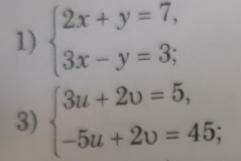 1) { 2x + y = 7,
3x − y = 3;
3) { 3u + 2υ = 5,
−5u + 2υ = 45;